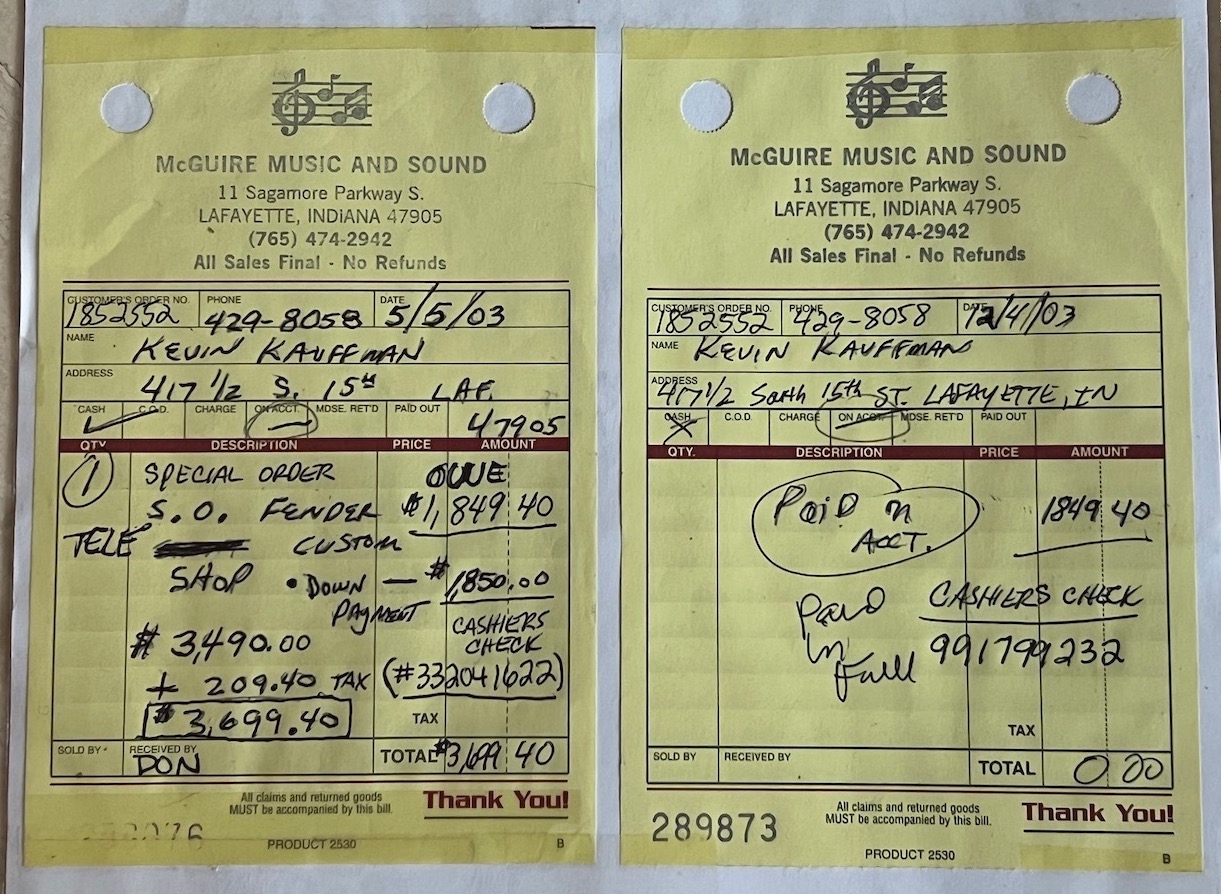 McGUIRE MUSIC AND SOUND
11 Sagamore Parkway S.
LAFAYETTE, INDIANA 47905
(765) 474-2942
All Sales Final - No Refunds
CUSTOMER'S ORDER NO. PHONE DATE
1852552 429-8058 5/5/03
NAME
KEVIN KAUFFMAN
ADDRESS
417 1/2 S. 15th LAF.
CASH C.O.D. CHARGE ON ACCT. MDSE. RET'D PAID OUT
47905
QTY. DESCRIPTION PRICE AMOUNT
1 SPECIAL ORDER OWE
S.O. FENDER $1,849 40
TELE CUSTOM
SHOP • DOWN — $1,850.00
PAYMENT
CASHIERS
CHECK
$ 3,490.00
+ 209.40 TAX (#332041622)
$3,699.40
TAX
SOLD BY RECEIVED BY
DON
TOTAL $3,699 40
All claims and returned goods
MUST be accompanied by this bill.
Thank You!
PRODUCT 2530 B
McGUIRE MUSIC AND SOUND
11 Sagamore Parkway S.
LAFAYETTE, INDIANA 47905
(765) 474-2942
All Sales Final - No Refunds
CUSTOMER'S ORDER NO. PHONE DATE
1852552 429-8058 12/4/03
NAME
KEVIN KAUFFMAN
ADDRESS
417 1/2 South 15th ST. LAFAYETTE, IN
CASH C.O.D. CHARGE ON ACCT. MDSE. RET'D PAID OUT
QTY. DESCRIPTION PRICE AMOUNT
PAID on 1849 40
ACCT.
Paid CASHIERS CHECK
In 991799232
Full
TAX
SOLD BY RECEIVED BY
TOTAL 0 00
All claims and returned goods
MUST be accompanied by this bill.
Thank You!
289873
PRODUCT 2530 B